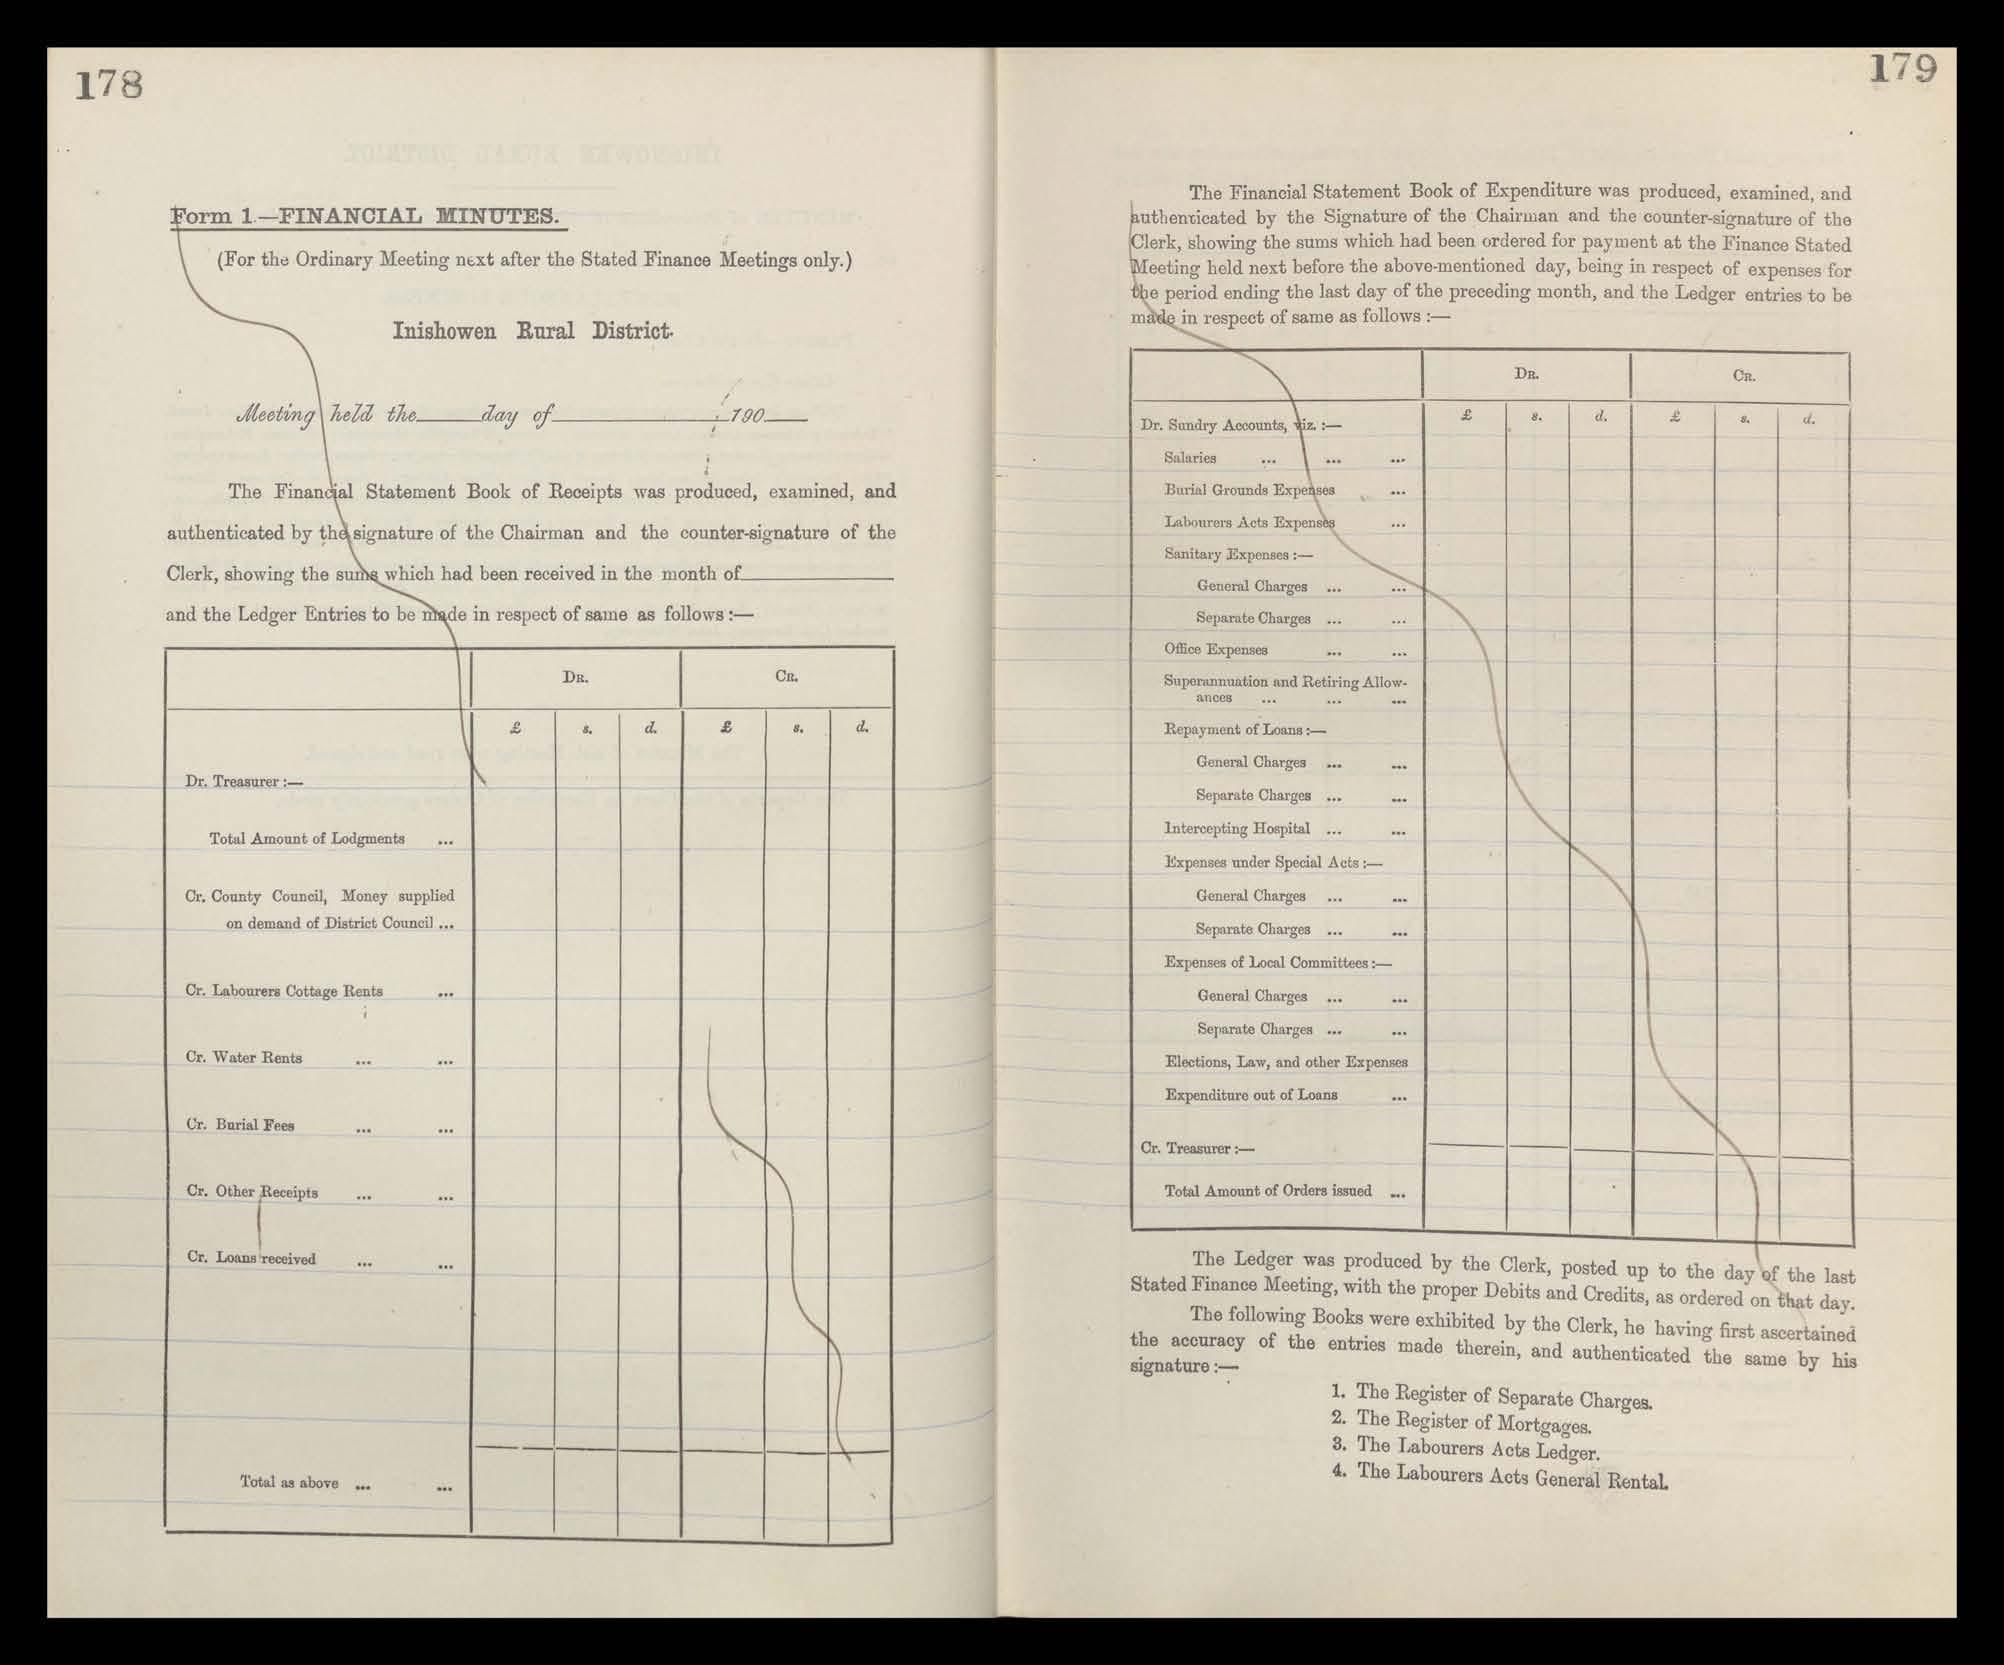 178
Form 1.—FINANCIAL MINUTES.
(For the Ordinary Meeting next after the Stated Finance Meetings only.)
Inishowen Rural District.
Meeting held the day of 190
The Financial Statement Book of Receipts was produced, examined, and
authenticated by the signature of the Chairman and the counter-signature of the
Clerk, showing the sums which had been received in the month of
and the Ledger Entries to be made in respect of same as follows :—
DR. CR.
£ s. d. £ s. d.
Dr. Treasurer :—
Total Amount of Lodgments ...
Cr. County Council, Money supplied
on demand of District Council ...
Cr. Labourers Cottage Rents ...
Cr. Water Rents ... ...
Cr. Burial Fees ... ...
Cr. Other Receipts ... ...
Cr. Loans received ... ...
Total as above ... ...
179
The Financial Statement Book of Expenditure was produced, examined, and
authenticated by the Signature of the Chairman and the counter-signature of the
Clerk, showing the sums which had been ordered for payment at the Finance Stated
Meeting held next before the above-mentioned day, being in respect of expenses for
the period ending the last day of the preceding month, and the Ledger entries to be
made in respect of same as follows :—
DR. CR.
£ s. d. £ s. d.
Dr. Sundry Accounts, viz. :—
Salaries ... ... ...
Burial Grounds Expenses ...
Labourers Acts Expenses ...
Sanitary Expenses :—
General Charges ... ...
Separate Charges ... ...
Office Expenses ... ...
Superannuation and Retiring Allow-
ances ... ... ...
Repayment of Loans :—
General Charges ... ...
Separate Charges ... ...
Intercepting Hospital ... ...
Expenses under Special Acts :—
General Charges ... ...
Separate Charges ... ...
Expenses of Local Committees :—
General Charges ... ...
Separate Charges ... ...
Elections, Law, and other Expenses
Expenditure out of Loans ...
Cr. Treasurer :—
Total Amount of Orders issued ...
The Ledger was produced by the Clerk, posted up to the day of the last
Stated Finance Meeting, with the proper Debits and Credits, as ordered on that day.
The following Books were exhibited by the Clerk, he having first ascertained
the accuracy of the entries made therein, and authenticated the same by his
signature :—
1. The Register of Separate Charges.
2. The Register of Mortgages.
3. The Labourers Acts Ledger.
4. The Labourers Acts General Rental.